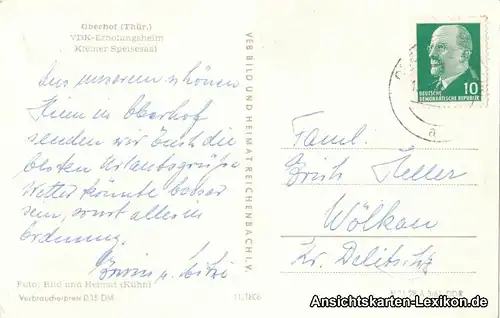 Oberhof (Thür.)
VDK-Erholungsheim
Kleiner Speisesaal
Aus unserem schönen
Heim in Oberhof
senden wir Euch die
besten Urlaubsgrüße
Wetter könnte besser
sein, sonst alles in
Ordnung.
Erwin u.
Foto: Bild und Heimat (Kühn)
Verbraucherpreis 0,15 DM
VEB BILD UND HEIMAT REICHENBACH i. V.
10
DEUTSCHE
DEMOKRATISCHE REPUBLIK
a
Faml.
Erich Heller
Wölkau
Kr. Delitzsch
Ansichtskarten-Lexikon.de